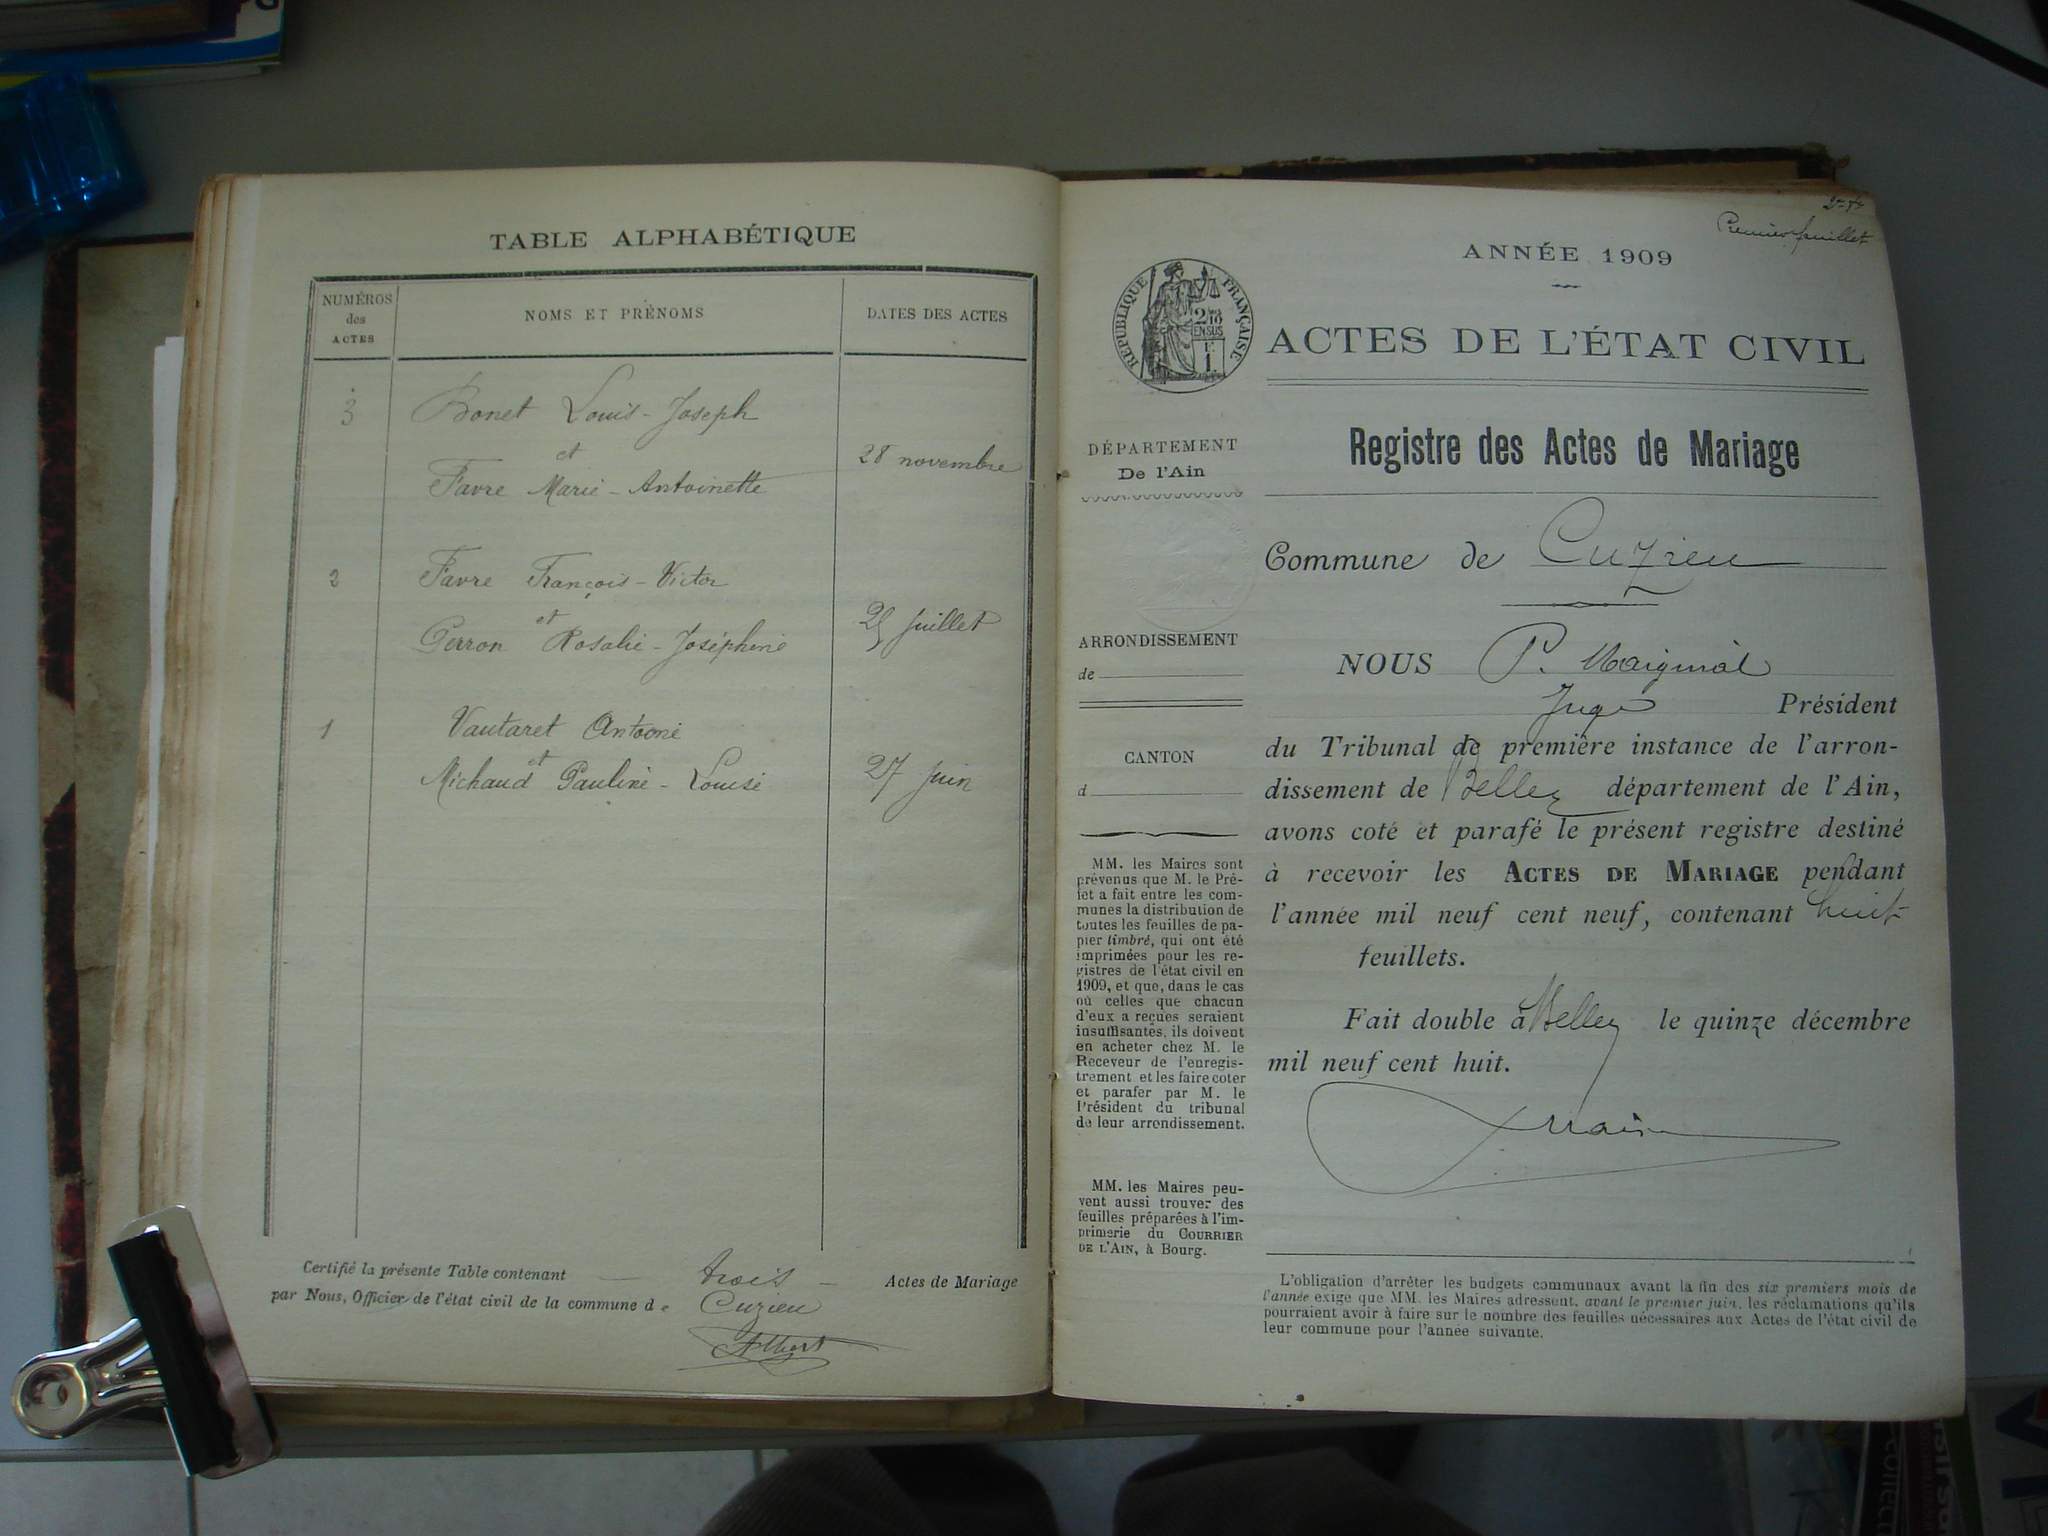 TABLE ALPHABÉTIQUE
NUMÉROS
des
ACTES
NOMS ET PRÉNOMS
DATES DES ACTES
3
Bonet Louis-Joseph
et
28 novembre
Favre Marie-Antoinette
2
Favre François-Victor
et
25 juillet
Perron Rosalie-Joséphine
1
Vautaret Antoine
et
27 juin
Michaud Pauline-Louise
Certifié la présente Table contenant trois Actes de Mariage
par Nous, Officier de l'état civil de la commune de Cuzieu
Premier feuillet
ANNÉE 1909
RÉPUBLIQUE FRANÇAISE
2/10
EN SUS
F
1.
ACTES DE L'ÉTAT CIVIL
Registre des Actes de Mariage
DÉPARTEMENT
De l'Ain
Commune de Cuzieu
ARRONDISSEMENT
de
CANTON
d
NOUS P.
Juge Président
du Tribunal de première instance de l'arron-
dissement de Belley département de l'Ain,
avons coté et parafé le présent registre destiné
à recevoir les ACTES DE MARIAGE pendant
l'année mil neuf cent neuf, contenant huit
feuillets.
Fait double à Belley le quinze décembre
mil neuf cent huit.
MM. les Maires sont
prévenus que M. le Pré-
fet a fait entre les com-
munes la distribution de
toutes les feuilles de pa-
pier timbré, qui ont été
imprimées pour les re-
gistres de l'état civil en
1909, et que, dans le cas
où celles que chacun
d'eux a reçues seraient
insuffisantes, ils doivent
en acheter chez M. le
Receveur de l'enregis-
trement et les faire coter
et parafer par M. le
Président du tribunal
de leur arrondissement.
MM. les Maires peu-
vent aussi trouver des
feuilles préparées à l'im-
primerie du COURRIER
DE L'AIN, à Bourg.
L'obligation d'arrêter les budgets communaux avant la fin des six premiers mois de
l'année exige que MM. les Maires adressent, avant le premier juin, les réclamations qu'ils
pourraient avoir à faire sur le nombre des feuilles nécessaires aux Actes de l'état civil de
leur commune pour l'année suivante.